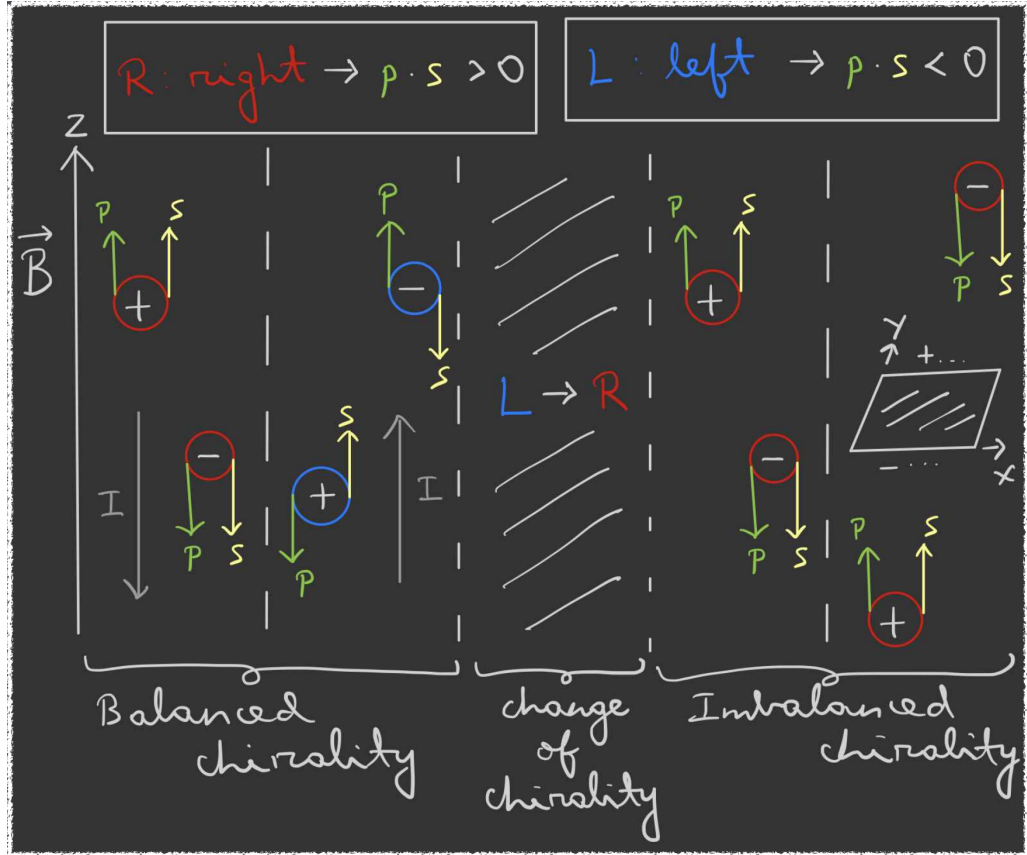 R: right → p · s > 0
L : left → p · s < 0
z
B
P
S
+
P
-
S
I
-
P
S
S
+
P
I
L → R
P
S
+
-
P
S
-
P
S
Y
+....
X
- ...
P
S
+
Balanced
chirality
change
of
chirality
Imbalanced
chirality